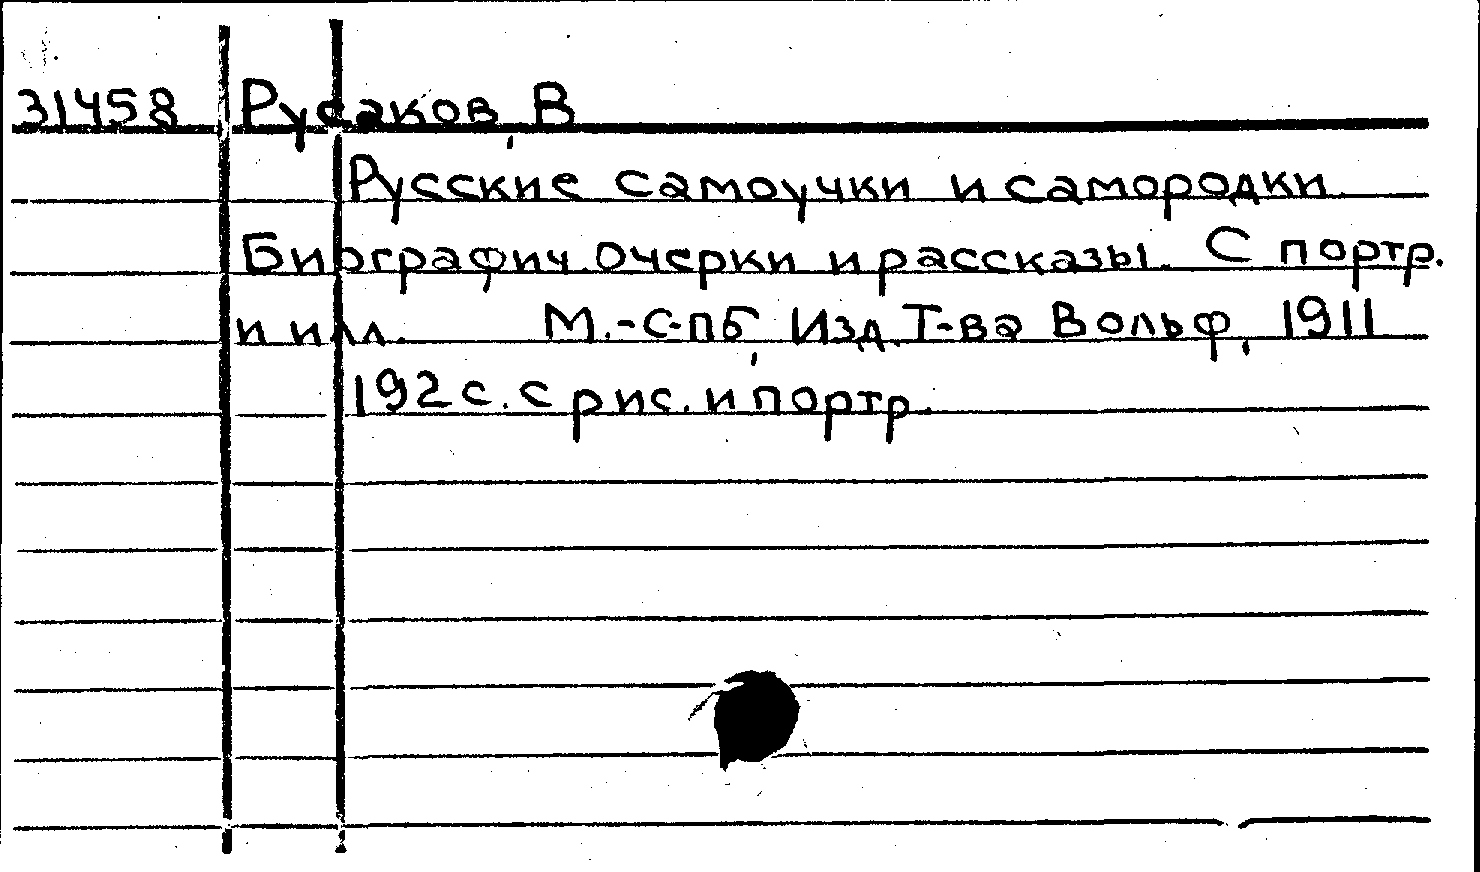 31458 Русаков, В
Русские самоучки и самородки.
Биографич. очерки и рассказы. С портр.
и илл. М.-С-пб, Изд. Т-ва Вольф, 1911
192 с. с рис. и портр.